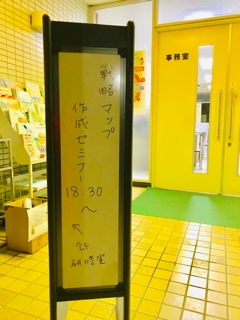 戦略マップ
作成セミナー
18:30
～
↖ 2F
研修室
事務室